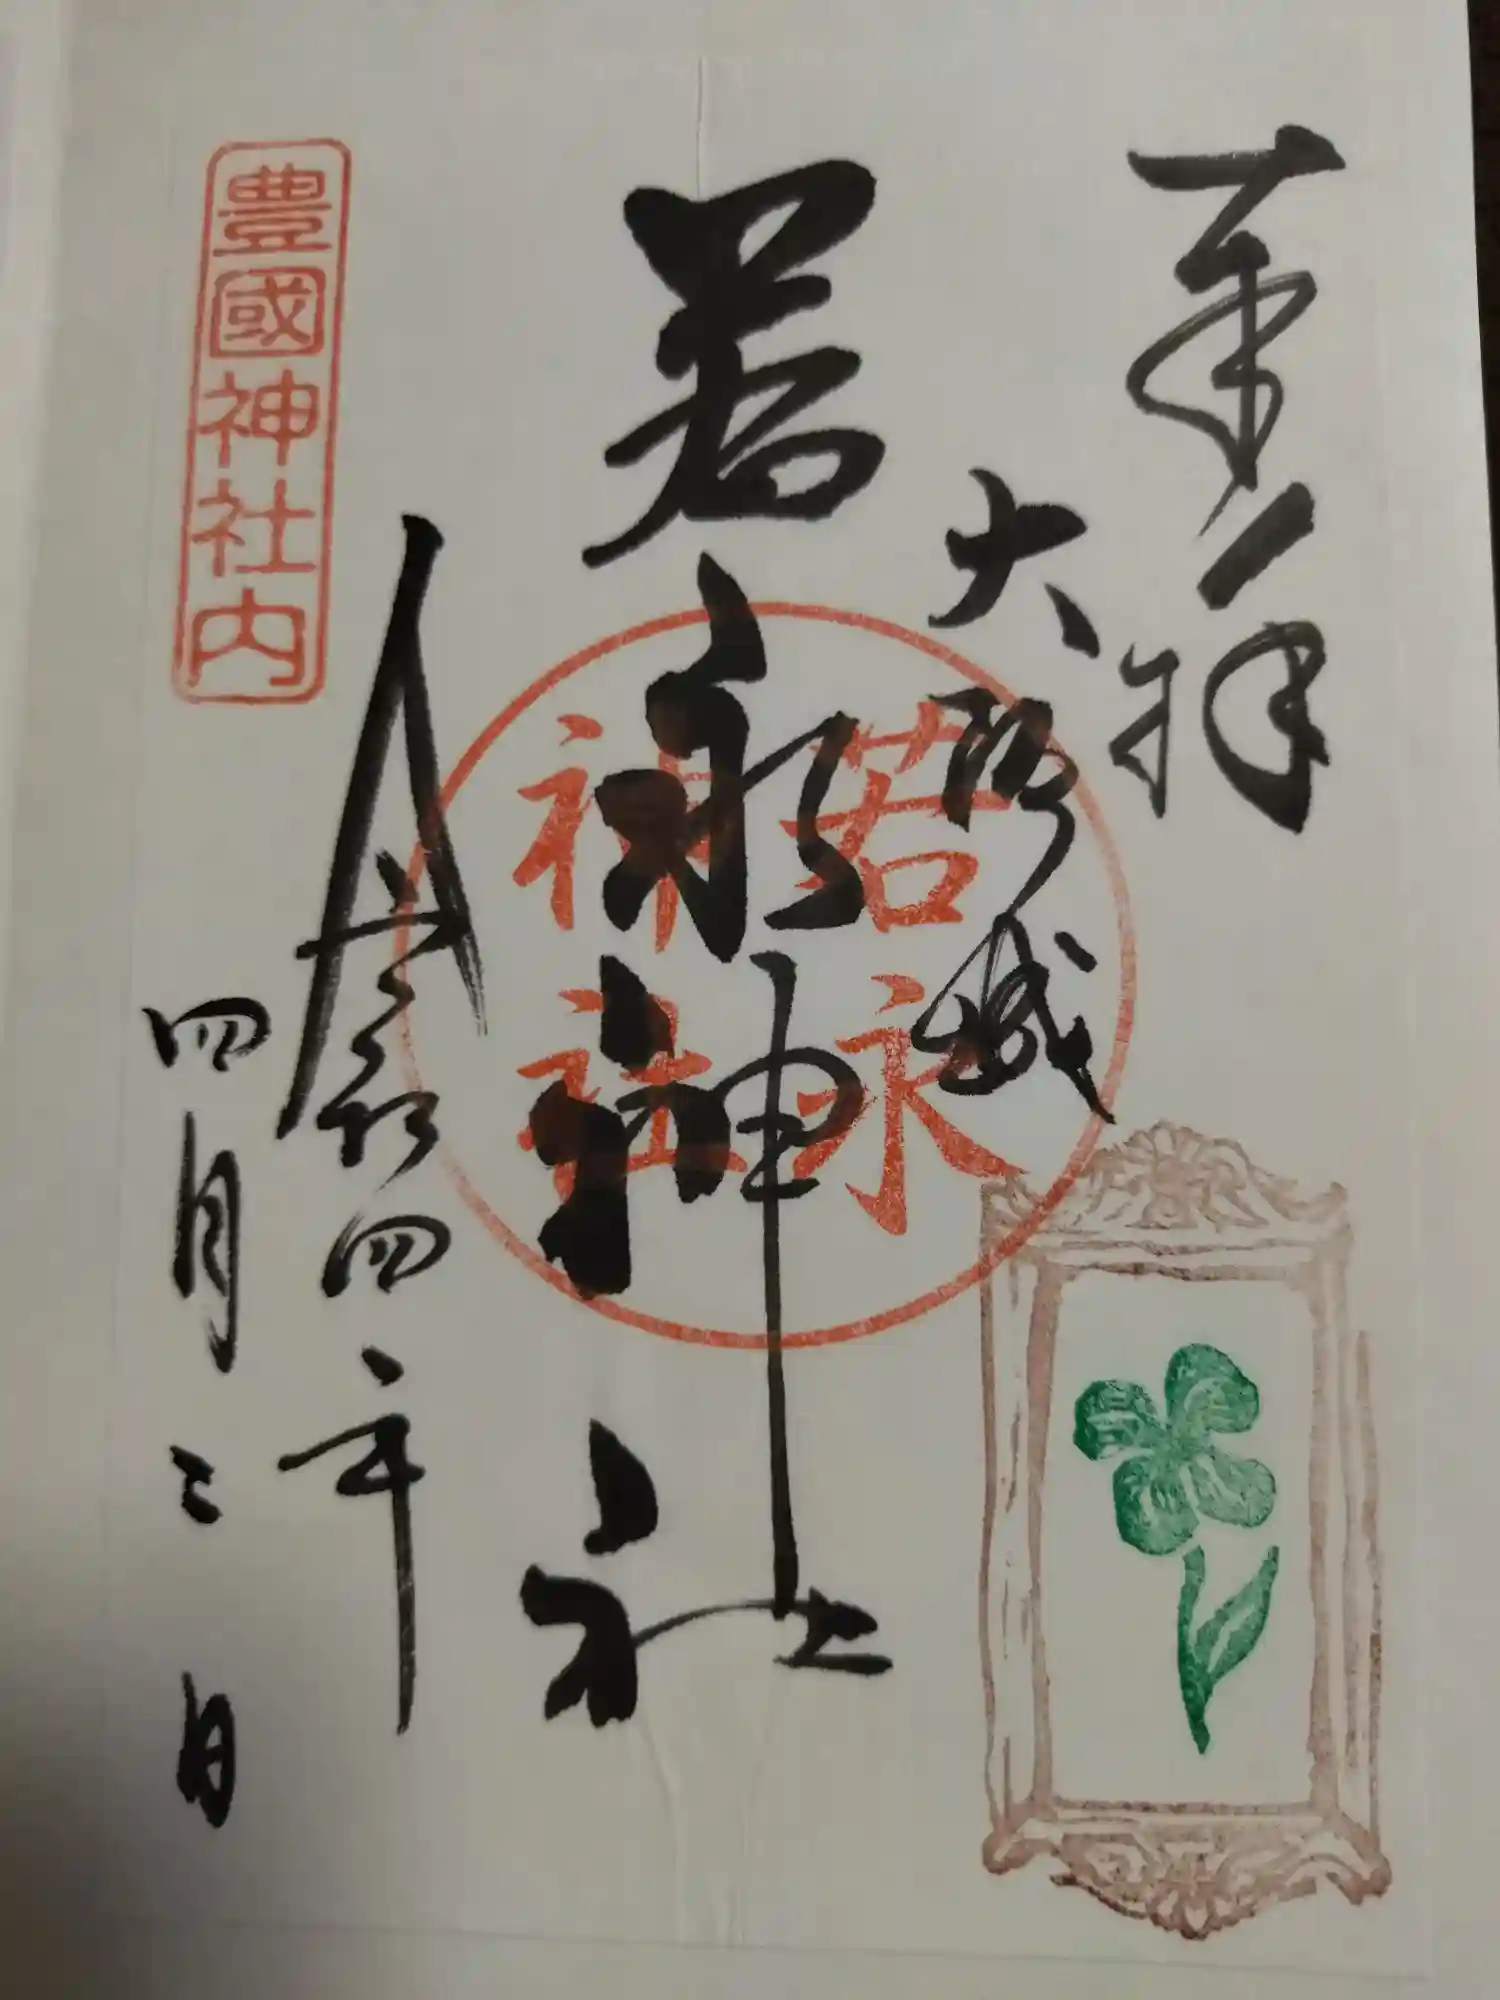 奉拝
大阪城
若永神社
若永
神社
令和四年
四月二日
豊國神社内